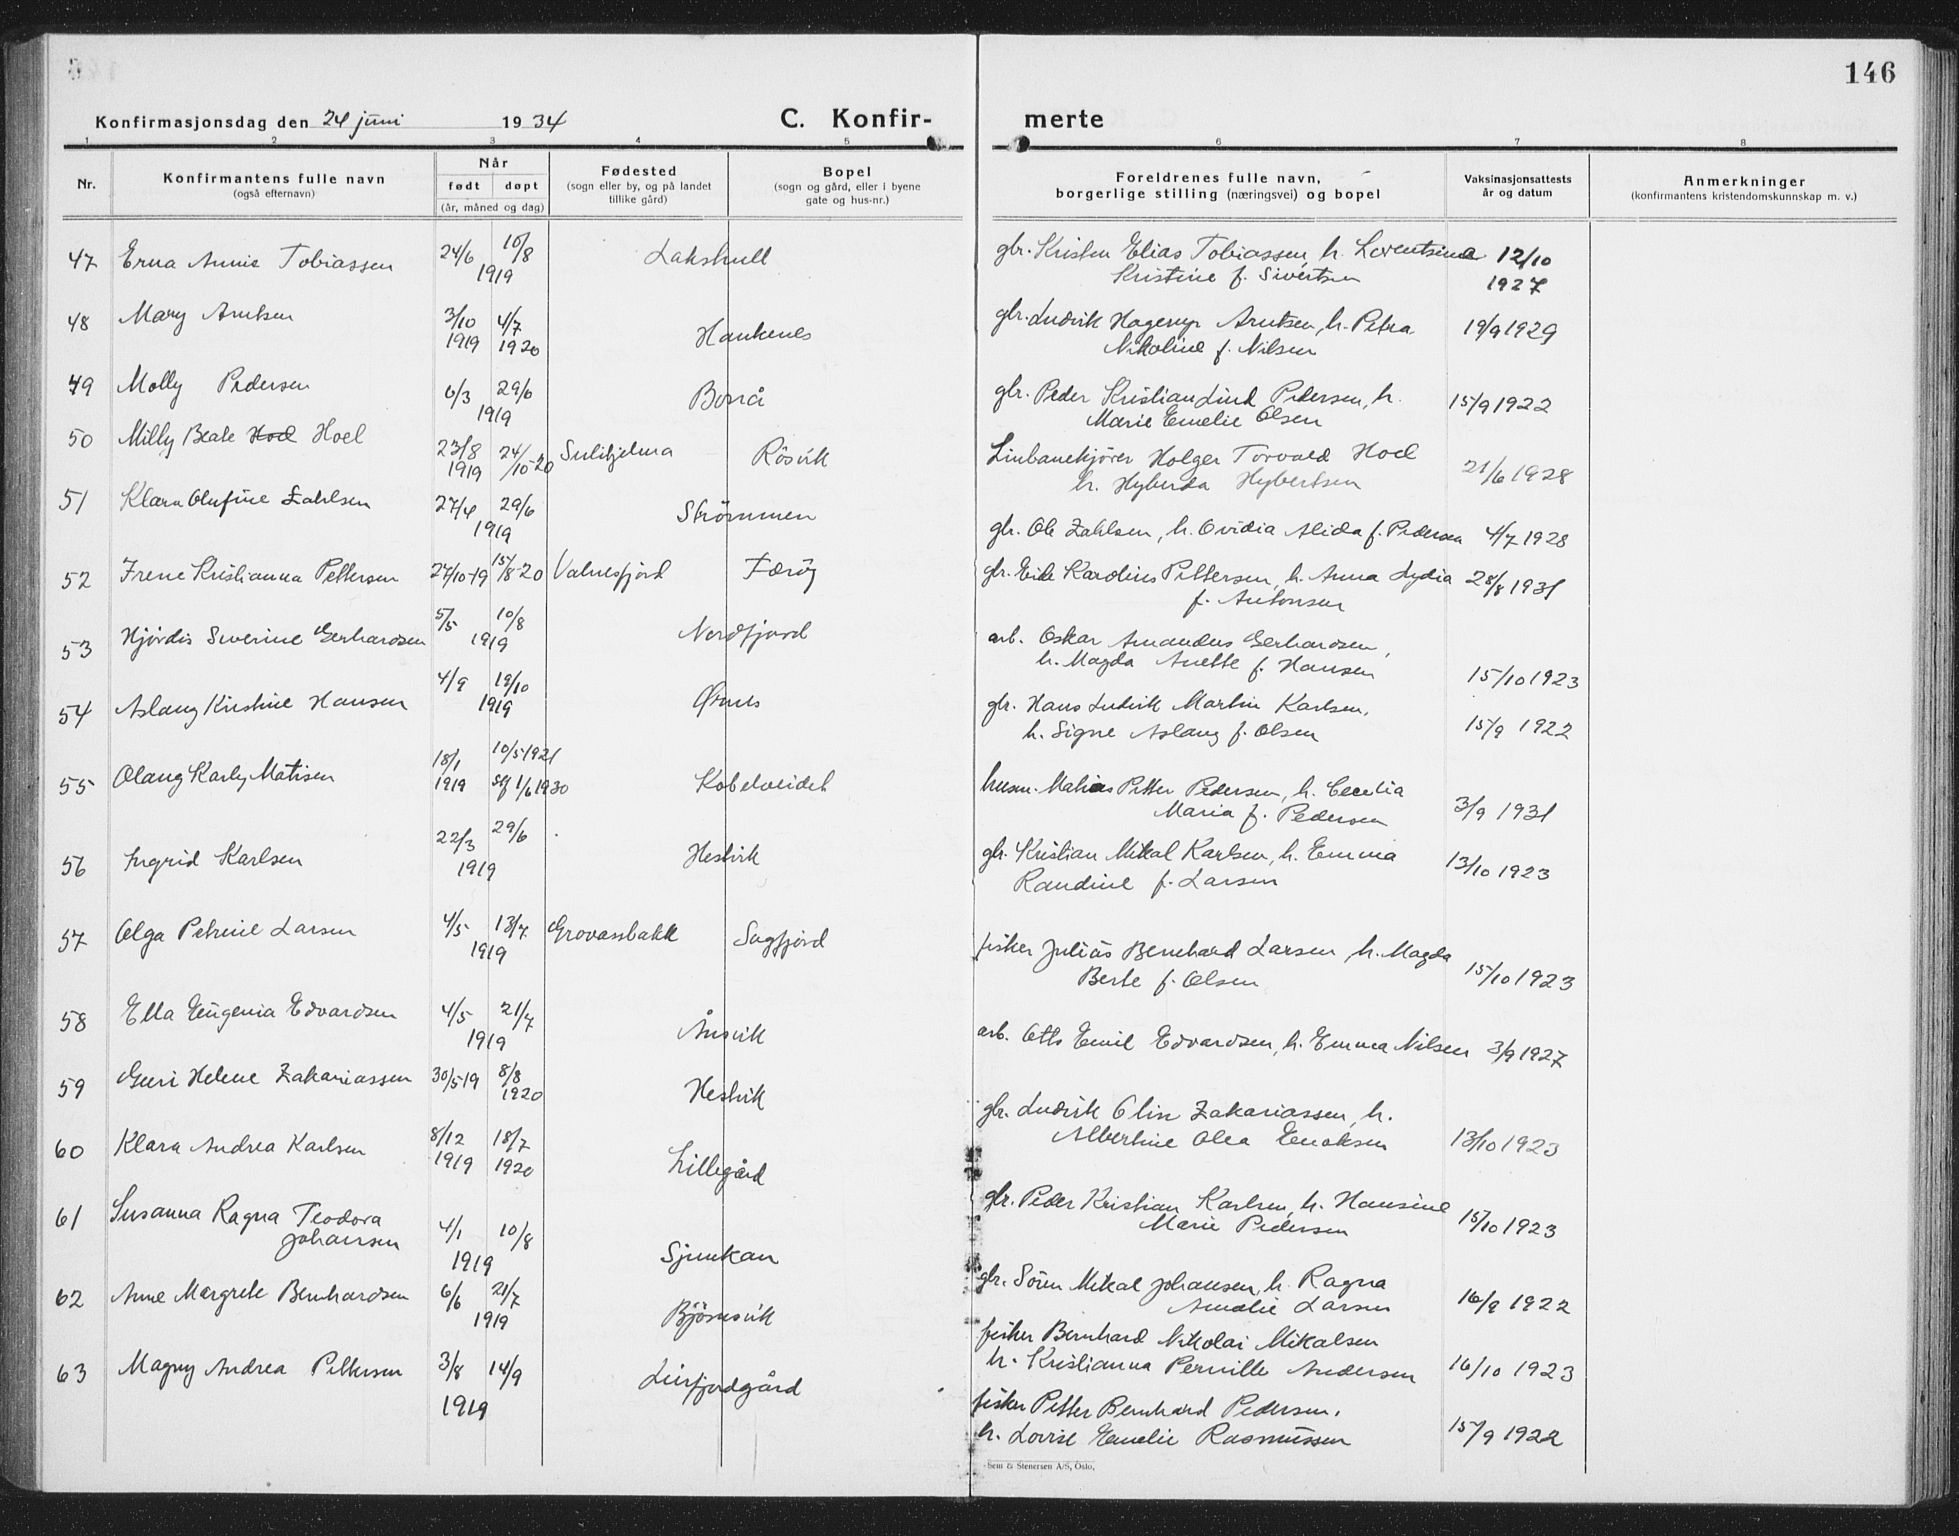 146
Konfirmasjonsdag den 24 juni 1934
C. Konfirmerte
1 2 3 4 5 6 7 8
Nr.
Konfirmantens fulle navn
(også efternavn)
Når
født døpt
(år, måned og dag)
Fødested
(sogn eller by, og på landet
tillike gård)
Bopel
(sogn og gård, eller i byene
gate og hus-nr.)
Foreldrenes fulle navn,
borgerlige stilling (næringsvei) og bopel
Vaksinasjonsattests
år og datum
Anmerkninger
(konfirmantens kristendomskunnskap m. v.)
47 Erna Annie Tobiassen 24/6 10/8 1919 Lakshull
gbr. Kristen Elias Tobiassen, h. Lorentsine
Kristine f. Sivertsen 12/10 1927
48 Mary Arntsen 3/10 1919 4/7 1920 Haukenes
gbr. Ludvik Hagerup Arntsen, h. Petra
Nikoline f. Nilsen 19/9 1929
49 Molly Pedersen 6/3 29/6 1919 Bonnå
gbr. Peder Kristian Lind Pedersen, h.
Marie Emelie Olsen 15/9 1922
50 Milly Beate Hoel Hoel 23/8 1919 24/10-20 Sulitjelma Røsvik
Linbanekjører Holger Torvald Hoel
h. Hyberda Hybertsen 21/6 1928
51 Klara Olufine Zahlsen 27/4 29/6 1919 Strömmen
gbr. Ole Zahlsen, h. Ovidia Alida f. Pedersen 4/7 1928
52 Irene Kristianna Pettersen 27/10-19 15/8-20 Valnesfjord Færöy
gbr. Eide Karolius Pettersen, h. Anna Lydia
f. Antonsen 28/8 1931
53 Hjördis Severine Gerhardsen 5/5 10/8 1919 Nordfjord
arb. Oskar Amandus Gerhardsen,
h. Magda Anette f. Hansen 15/10 1923
54 Aslaug Kristine Hansen 4/9 19/10 1919 Ørnes
gbr. Hans Ludvik Martin Karlsen,
h. Signe Aslaug f. Olsen 15/9 1922
55 Olaug Karly Matisen 18/1 1919 10/5 1921 stf 1/6 1930 Kobelveidet
husm. Mathias Petter Pedersen, h. Cecelia
Maria f. Pedersen 3/9 1931
56 Ingrid Karlsen 22/3 29/6 1919 Hestvik
gbr. Kristian Mikal Karlsen, h. Emma
Randine f. Larsen 13/10 1923
57 Olga Petrine Larsen 4/5 13/7 1919 Grovassbakk Sagfjord
fisker Julius Bernhard Larsen, h. Magda
Berte f. Olsen 15/10 1923
58 Ella Eugenia Edvardsen 4/5 21/7 1919 Ånsvik
arb. Otto Emil Edvardsen, h. Emma Nilsen 3/9 1927
59 Guri Helene Zakariassen 30/5-19 8/8 1920 Hestvik
gbr. Ludvik Olin Zakariassen, h.
Albertine Olea Enoksen 13/10 1923
60 Klara Andrea Karlsen 8/12 1919 18/7 1920 Lillegård
gbr. Peder Kristian Karlsen, h. Hansine
Marie Pedersen 15/10 1923
61 Susanna Ragna Teodora
Johansen 4/1 10/8 1919 Sjunkan
gbr. Sören Mikal Johansen, h. Ragna
Amalie Larsen 16/9 1922
62 Anne Margrete Bernhardsen 6/6 21/7 1919 Bjömsvik
fisker Bernhard Nikolai Mikalsen
h. Kristianna Pernille Andersen 16/10 1923
63 Magny Andrea Pettersen 3/8 14/9 1919 Leirfjordgård
fisker Petter Bernhard Pedersen,
h. Lovise Emelie Rasmussen 15/9 1922
Sem & Stenersen A/S, Oslo.